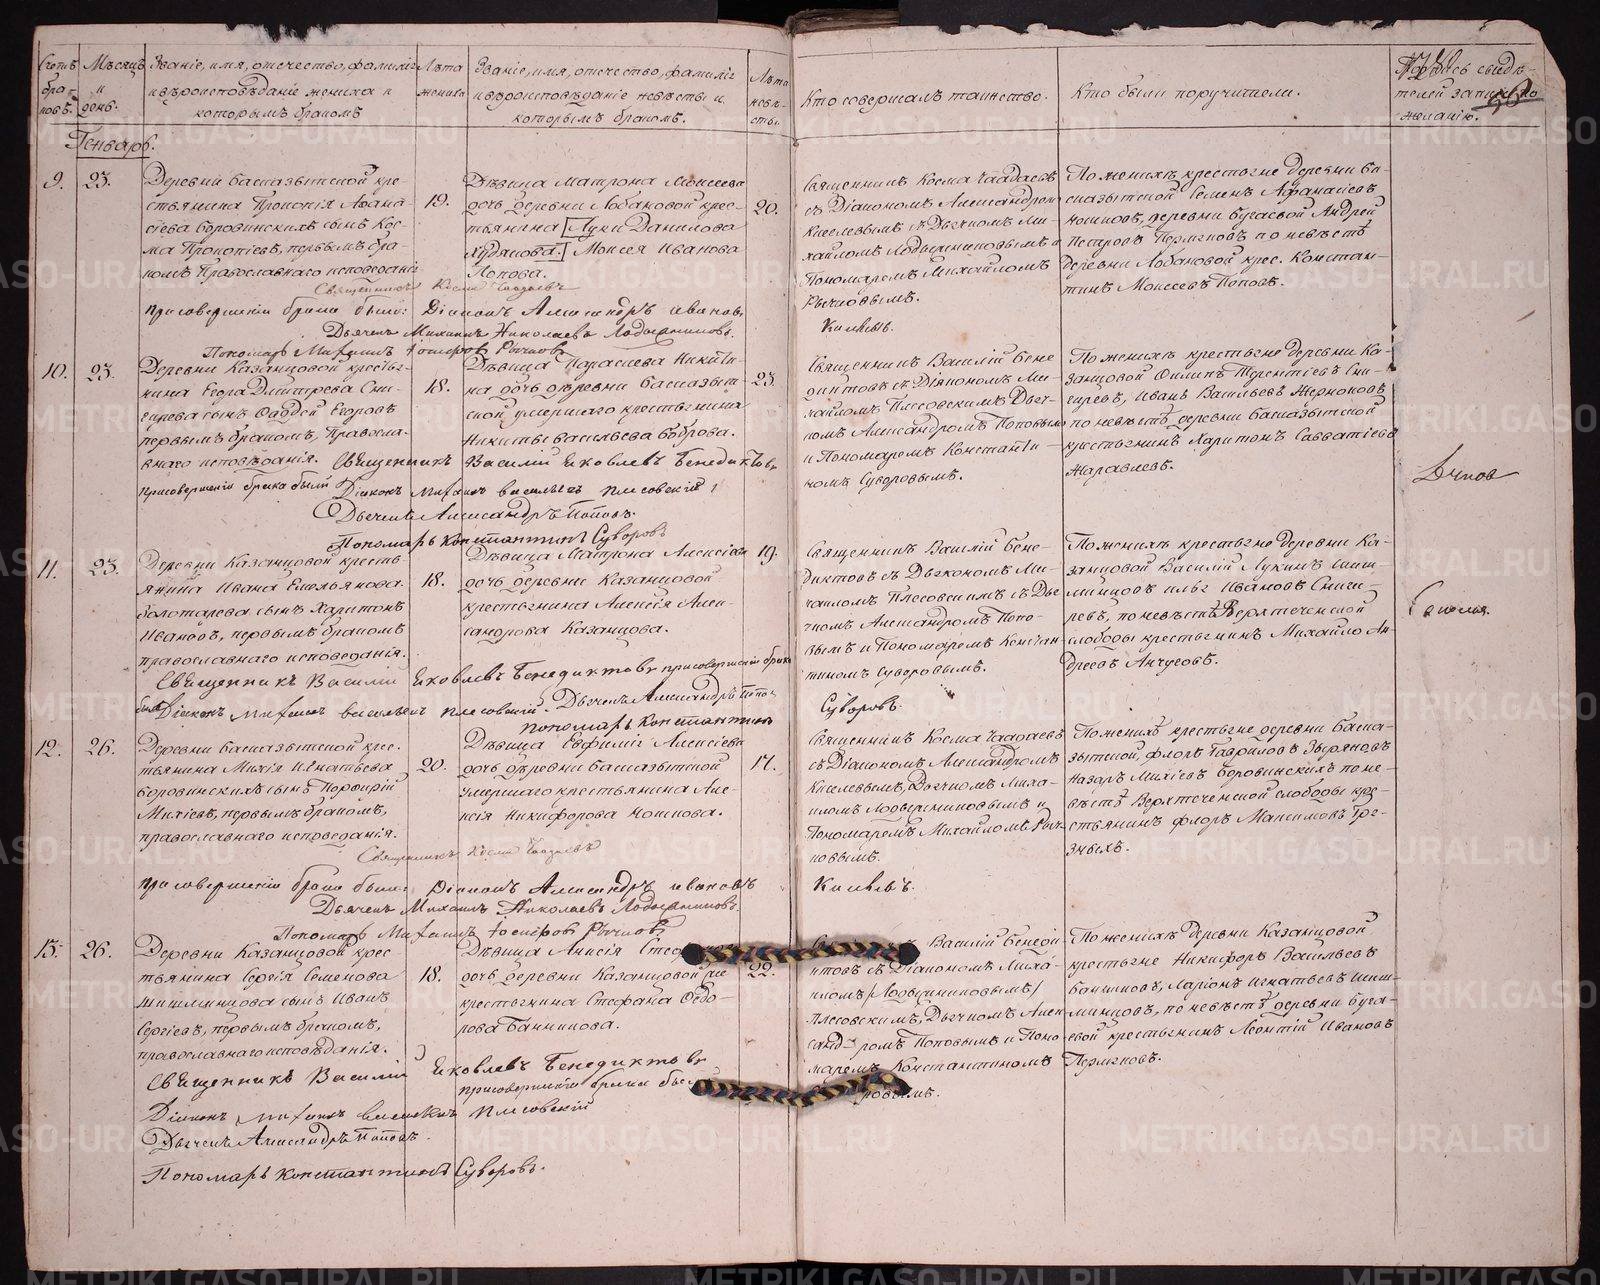 Счетъ браковъ.
Мѣсяцъ и день.
Званіе, имя, отечество, фамилія
и вѣроисповѣданіе жениха и
которымъ бракомъ
Лѣта жениха
Званіе, имя, отечество, фамилія
и вѣроисповѣданіе невѣсты и
которымъ бракомъ.
Лѣта невѣсты.
Кто совершалъ таинство.
Кто были поручители.
Подпись свидѣтелей записи по желанію.
Генварь.
9. 23.
Деревни Басказытской кре-
стьянина Прокопія Афана-
сіева Боровинскихъ сынъ Кос-
ма Прокопіевъ, первымъ бра-
комъ Православнаго исповеданія
19.
Дѣвица Матрона Моисеева
дочь деревни Лобановой крес-
тьянина Луки Данилова
Худякова. Моисея Иванова
Попова.
20.
Священникъ Косма Чаадаевъ
съ Діакономъ Александром
Киселевымъ съ Дьячкомъ Ми-
хайломъ Лодыжниковымъ и
Пономаремъ Михайломъ
Рычковымъ.
По женихѣ крестьяне деревни Ба-
сказытской Семенъ Афанасіевъ
Кошковъ, деревни Бугаевой Андрей
Петровъ Пермяковъ по невѣстѣ
деревни Лобановой крес. Констан-
тинъ Моисеевъ Поповъ.
Священникъ Косма Чаадаевъ
при совершеніи брака были: Діаконъ Александръ Ивановъ
Киселевъ.
Дьячекъ Михаилъ Николаевъ Лодыжниковъ
Пономарь Михаилъ Рычковъ
10. 23.
Деревни Казанцовой крестья-
нина Егора Дмитрева Сни-
гирева сынъ Фаддей Егоровъ
первымъ бракомъ, Правосла-
внаго исповѣданія.
18.
Дѣвица Параскева Никити-
на дочь деревни Басказыт-
ской умершаго крестьянина
Никиты Васильева Боброва.
23.
Священникъ Василій Бене
диктовъ съ Діякономъ Ми-
хайломъ Плесовскимъ Дьяч-
комъ Александромъ Поповым
и Пономаремъ Константи-
номъ Суворовымъ.
По женихѣ крестьяне деревни Ка-
занцовой Филипъ Терентіевъ Сни-
гиревъ, Иванъ Васильевъ Жерноковъ
по невѣстѣ деревни Басказытской
крестьянинъ Харитонъ Савватіевъ
Жаравлевъ.
Священникъ Василій Яковлевъ Бенедиктовъ
при совершеніи брака были Діяконъ Михаилъ Васильевъ Плесовскій,
Дьячекъ Александръ Поповъ.
Пономарь Константинъ Суворовъ
11. 23.
Деревни Казанцовой кресть-
янина Ивана Емельянова
Болотарева сынъ Харитонъ
Ивановъ, первымъ бракомъ
православнаго исповеданія.
18.
Дѣвица Матрона Алексіева
дочь деревни Казанцовой
крестьянина Алексія Алек-
сандрова Казанцова.
19.
Священникъ Василій Бене-
диктовъ съ Дьякономъ Ми-
хаиломъ Плесовскимъ съ Дья-
чкомъ Александромъ Попо-
вымъ и Пономаремъ Констан-
тиномъ Суворовымъ.
По женихѣ крестьяне деревни Ка-
занцовой Василій Лукинъ Шиш-
минцовъ Илья Ивановъ Сниги-
ревъ, по невѣстѣ Верхтеченской
слободы крестьянинъ Михайло Ан-
дреевъ Анчуговъ.
Священникъ Василій Яковлевъ Бенедиктовъ при совершеніи брака
были Діяконъ Михаилъ Васильевъ Плесовскій. Дьячекъ Александръ Попо
пономарь Константинъ
Суворовъ.
12. 26.
Деревни Басказытской крес-
тьянина Михія Игнатьева
Боровинскихъ сынъ Порфирій
Михіевъ, первымъ бракомъ,
православнаго исповеданія.
20.
Дѣвица Евфимія Алексіева
дочь деревни Басказытской
умершаго крестьянина Але-
ксія Никифорова Кошкова.
17.
Священникъ Косма Чаадаевъ
съ Діакономъ Александромъ
Киселевымъ, Дьячкомъ Миха-
иломъ Лодыжниковымъ и
Пономаремъ Михайломъ Рыч-
ковымъ.
По женихѣ крестьяне деревни Баска-
зытской, Флоръ Гавриловъ Зыряновъ
Назаръ Михіевъ Боровинскихъ по не-
вѣстѣ Верхтеченской слободы кре-
стьянинъ Флоръ Максимовъ Гря-
зныхъ.
Священникъ Косма Чаадаевъ
при совершеніи брака были: Діаконъ Александръ Ивановъ
Киселевъ.
Дьячекъ Михаилъ Николаевъ Лодыжниковъ
Пономарь Михаилъ Рычковъ
13. 26.
Деревни Казанцовой крес-
тьянина Сергія Семенова
Шишминцова сынъ Иванъ
Сергіевъ, первымъ бракомъ,
православнаго исповѣданія.
18.
Дѣвица Анисія
дочь деревни Казанцовой
крестьянина Стефана Федо-
рова Банникова.
22.
Василій Бенеди-
ктовъ съ Діакономъ Миха-
иломъ /Лодыжниковымъ/
Плесовскимъ, Дьячкомъ Алек-
сандромъ Поповымъ и Поно-
маремъ Константиномъ
По женихѣ Деревни Казанцовой
крестьяне Никифоръ Васильевъ
Банниковъ, Ларіонъ Игнатьевъ Шиш-
минцовъ, по невѣстѣ деревни Буга-
евой крестьянинъ Леонтій Ивановъ
Пермяковъ.
Священникъ Василій Яковлевъ Бенедиктовъ
при совершеніи брака были
Діяконъ Михаилъ Васильевъ Плесовскій
Дьячекъ Александръ Поповъ.
Пономарь Константинъ Суворовъ.
METRIKI.GASO-URAL.RU